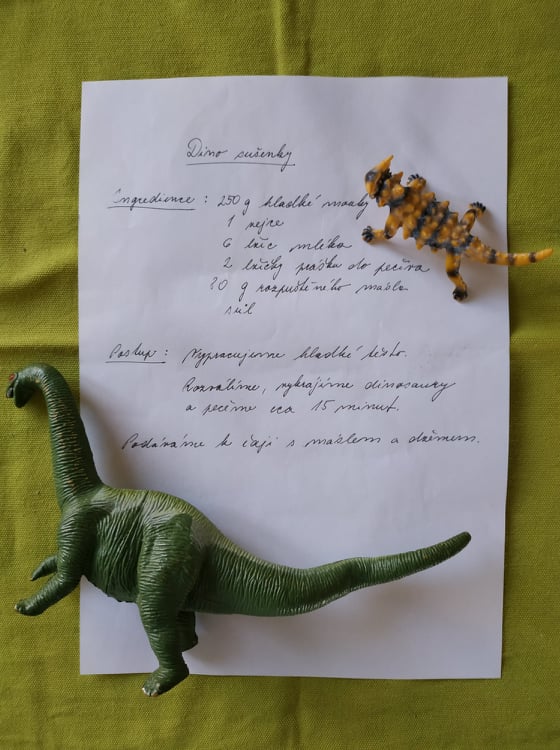 Dino sušenky
Ingredience : 250 g hladké mouky
1 vejce
6 lžic mléka
2 lžičky prášku do pečiva
g rozpuštěného másla
sůl
Postup : Vypracujeme hladké těsto.
Rozválíme, vykrajíme dinosaury
a pečeme cca 15 minut.
Podáváme k čaji s máslem a džemem.